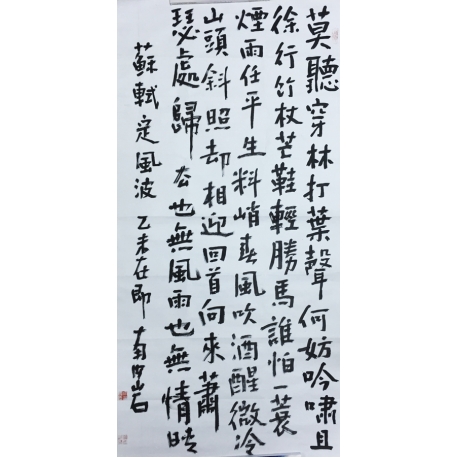 莫聽穿林打葉聲何妨吟嘯且
徐行竹杖芒鞋輕勝馬誰怕一蓑
煙雨任平生料峭春風吹酒醒微冷
山頭斜照却相迎回首向來蕭
瑟處歸去也無風雨也無情
蘇軾定風波 乙未在即 山石